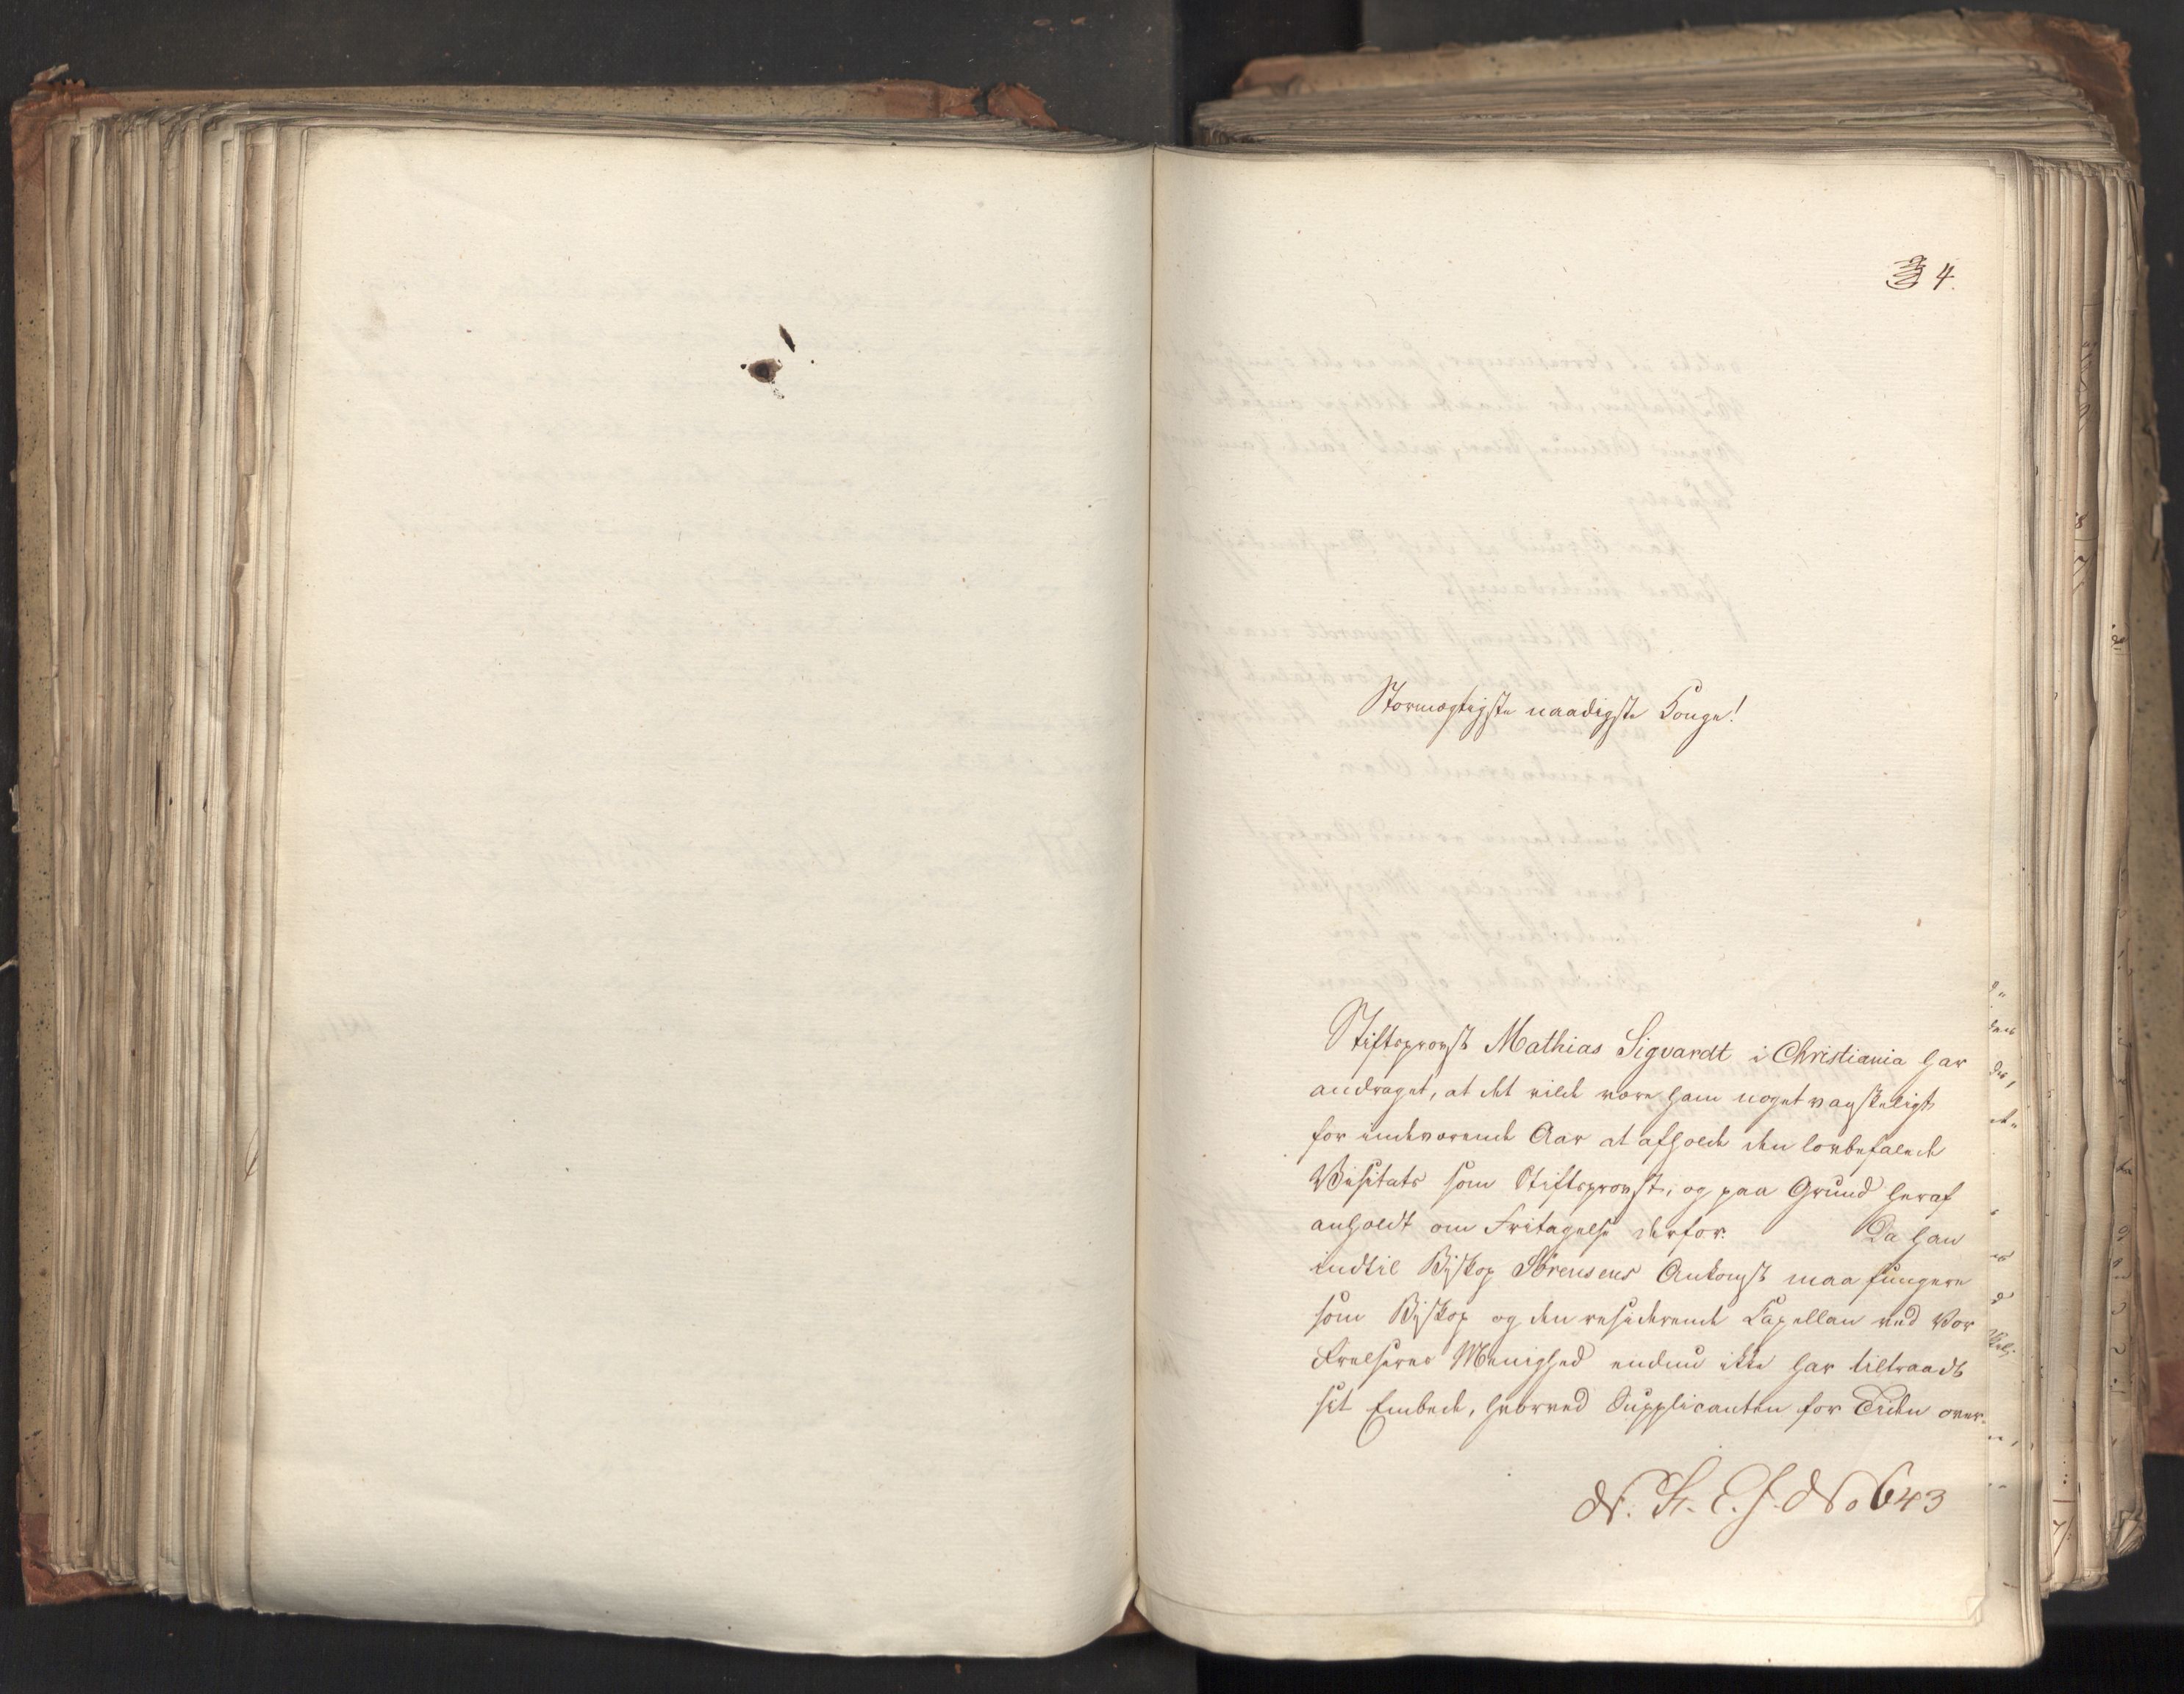 4.
Stormægtigste naadigste Konge!
Stiftsprovst Mathias Sigvardt i Christiania har
andraget, at det vilde være ham noget vanskeligt
for indeværende Aar at afholde den lovbefalede
Visitats som Stiftsprovst, og paa Grund heraf
anholdt om Fritagelse derfor. Da han
indtil Biskop Sörensens Ankomst maa fungere
som Biskop og den residerende Capellan ved Vor
Frelseres Menighed endnu ikke har tiltraadt
sit Embede, hvorved Supplicanten for Tiden over-
N. St. C. J. No 643